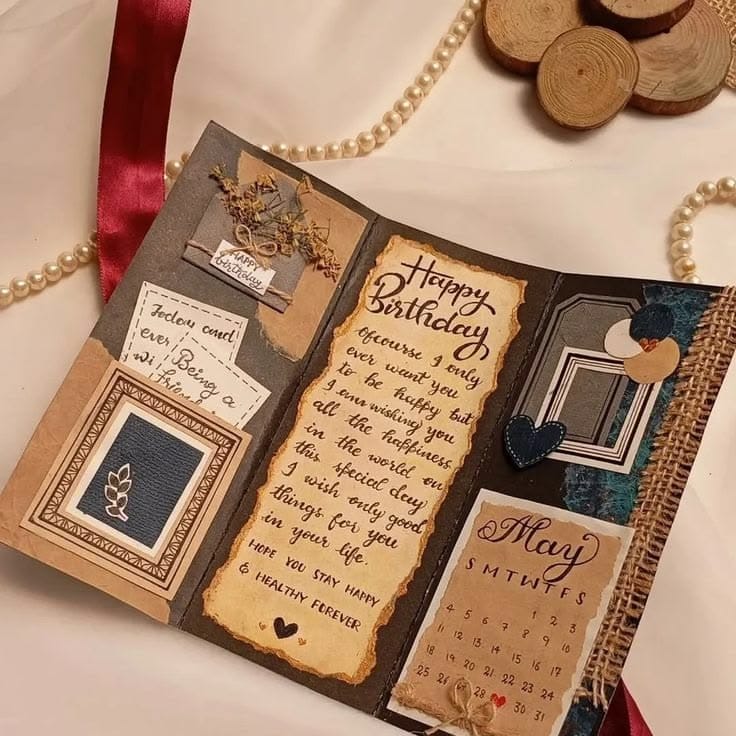 Happy
birthday
and
ever
Being a
Happy
Birthday
Ofcourse I only
ever want you
to be happy but
I am wishing you
all the happiness
in the world on
this special day
I wish only good
things for you
in your life.
HOPE YOU STAY HAPPY
& HEALTHY FOREVER
May
S M T W T F S
1 2 3
4 5 6 7 8 9 10
11 12 13 14 15 16 17
18 19 20 21 22 23 24
25 26 27 28 30 31